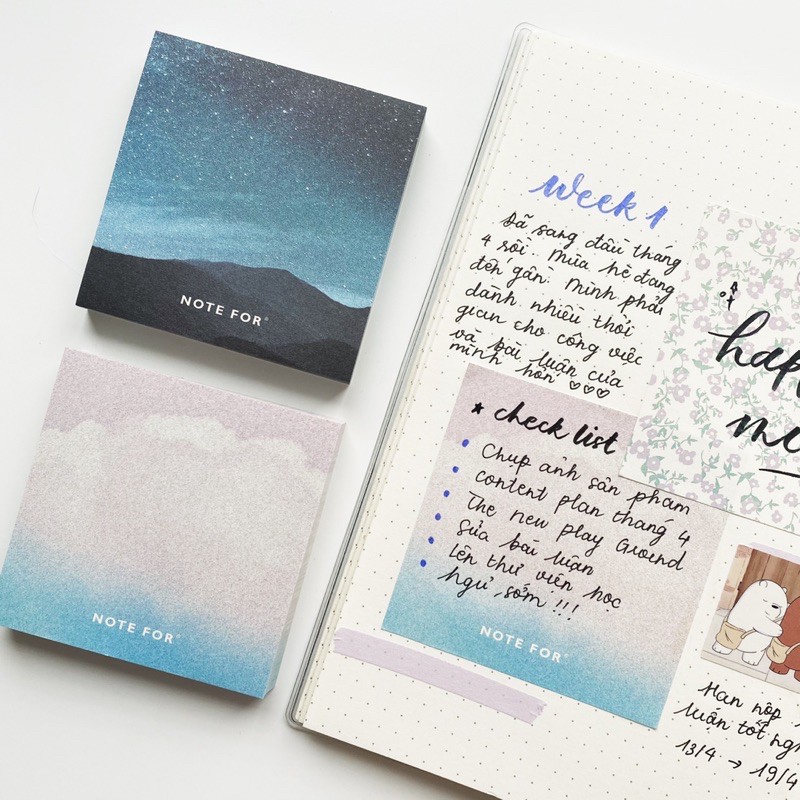 NOTE FOR
NOTE FOR
week 1
Đã sang đầu tháng
4 rồi. Mùa hè đang
đến gần. Mình phải
dành nhiều thời
gian cho công việc
và bài luận của
mình hơn ♡♡♡
★ check list
• Chụp ảnh sản phẩm
• content plan tháng 4
• The new play Ground
• Sửa bài luận
• Lên thư viện học
ngủ sớm!!!
NOTE FOR
Hạn nộp
luận tốt
13/4 → 19/4